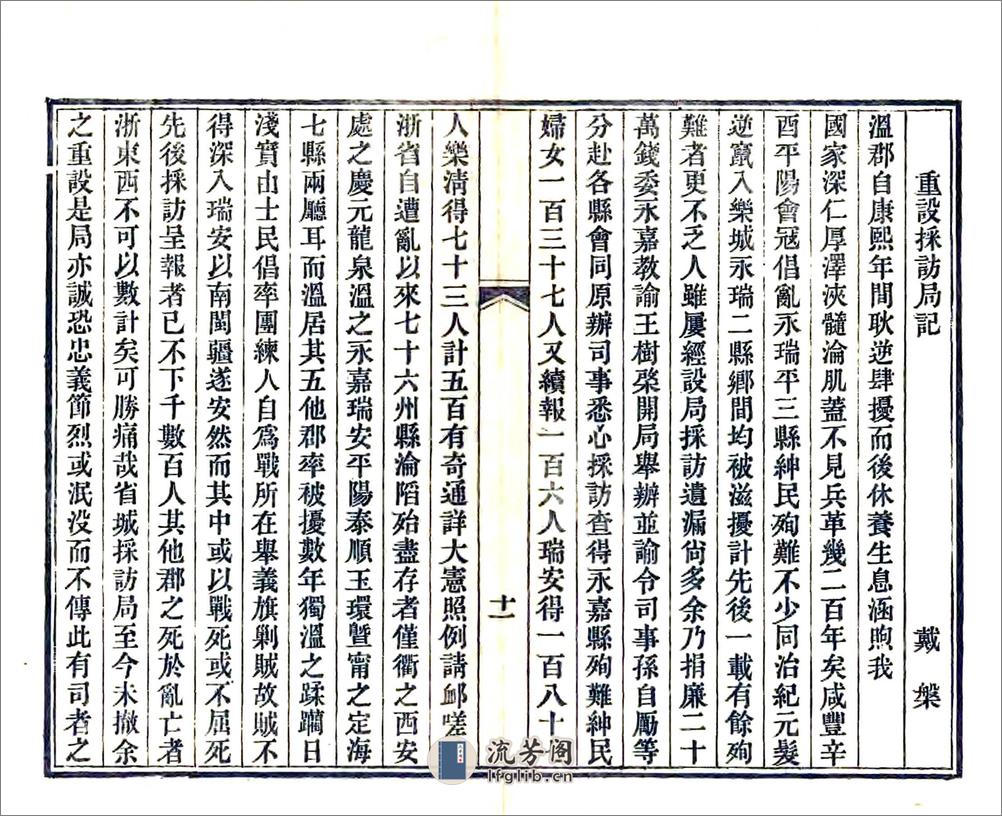 重設採訪局記　戴槃
溫郡自康熙年間耿逆肆擾而後休養生息涵煦我
國家深仁厚澤浹髓淪肌蓋不見兵革幾二百年矣咸豐辛
酉平陽會冦倡亂永瑞平三縣紳民殉難不少同治紀元髮
逆竄入樂城永瑞二縣鄉間均被滋擾計先後一載有餘殉
難者更不乏人雖屢經設局採訪遺漏尙多余乃捐廉二十
萬錢委永嘉教諭王樹棨開局舉辦並諭令司事孫自勵等
分赴各縣會同原辦司事悉心採訪查得永嘉縣殉難紳民
婦女一百三十七人又續報一百六人瑞安得一百八十
十一
人樂清得七十三人計五百有奇通詳大憲照例請卹嗟
浙省自遭亂以來七十六州縣淪陷殆盡存者僅衢之西安
處之慶元龍泉溫之永嘉瑞安平陽泰順玉環暨甯之定海
七縣兩廳耳而溫居其五他郡率被擾數年獨溫之蹂躪日
淺實由士民倡率團練人自爲戰所在舉義旗剿賊故賊不
得深入瑞安以南閩疆遂安然而其中或以戰死或不屈死
先後採訪呈報者已不下千數百人其他郡之死於亂亡者
浙東西不可以數計矣可勝痛哉省城採訪局至今未撤余
之重設是局亦誠恐忠義節烈或泯没而不傳此有司者之
流芳阁
lfglib.cn